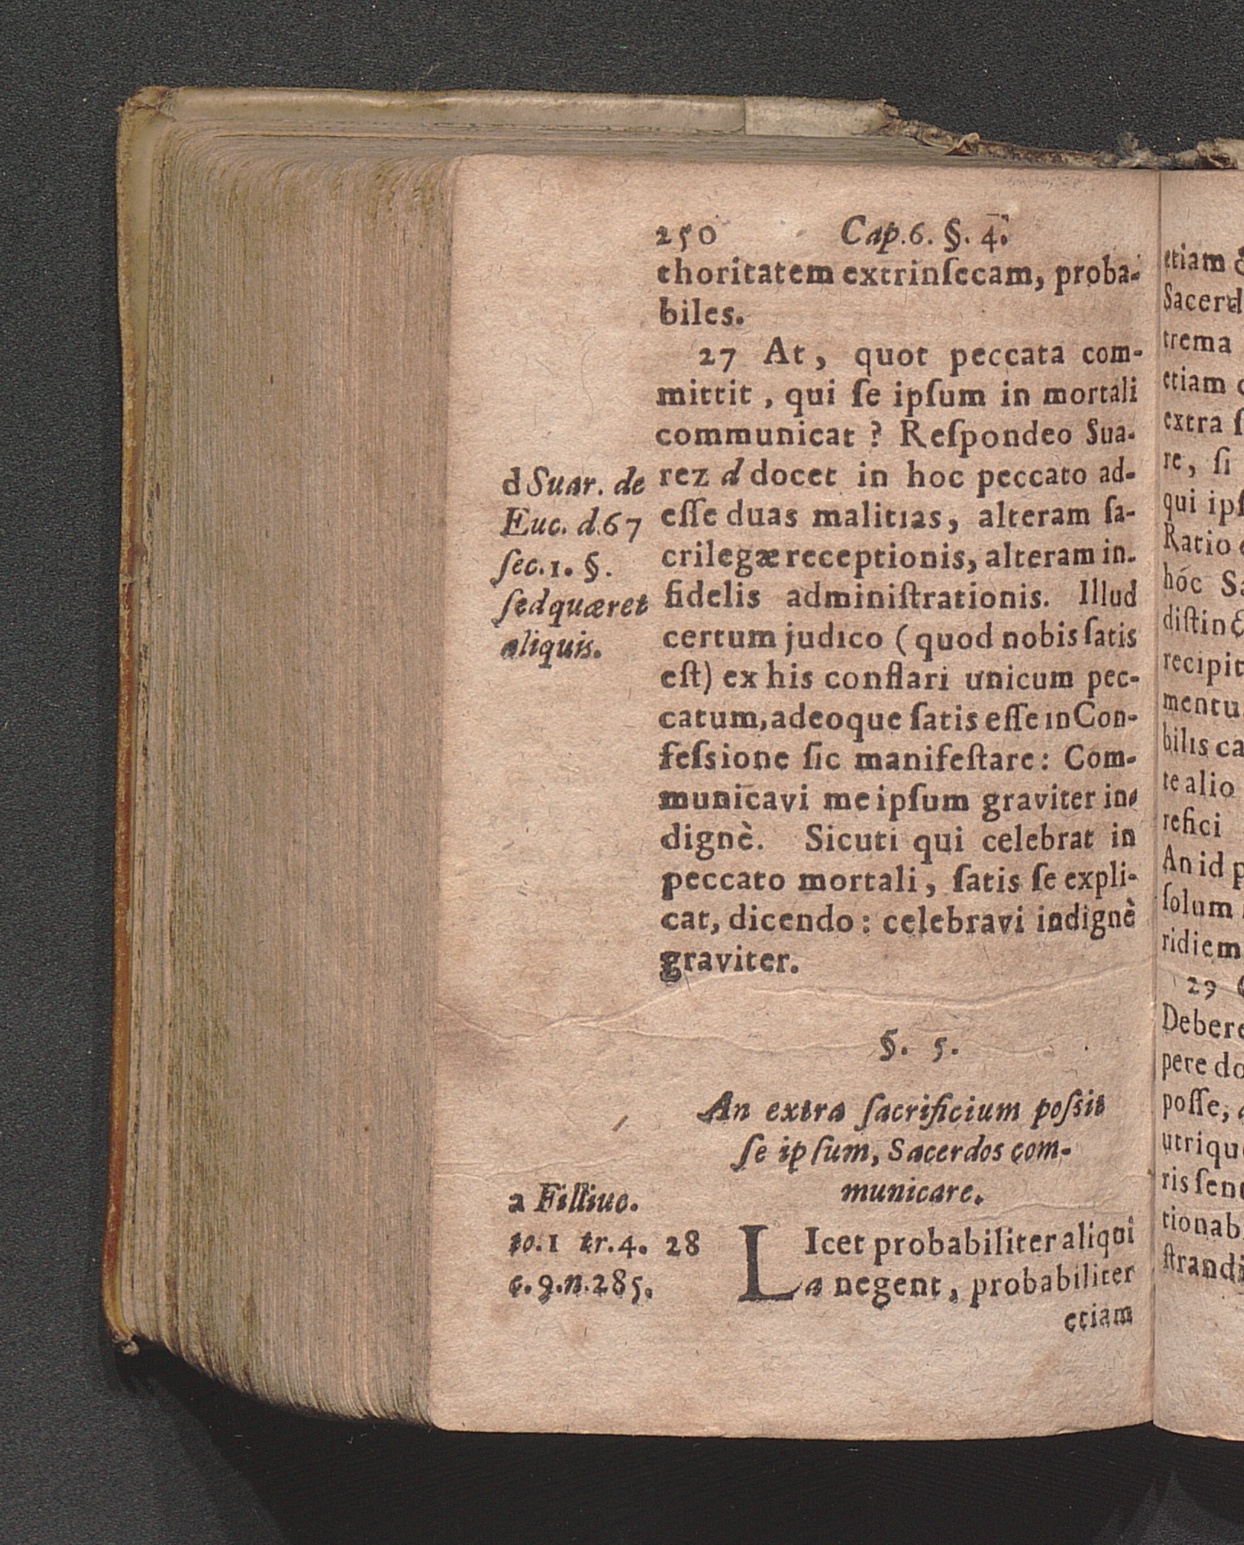 250 Cap.6. §. 4.
thoritatem extrinſecam, proba-
biles.
27 At, quot peccata com-
mittit, qui ſe ipſum in mortali
communicat? Reſpondeo Sua-
rez d docet in hoc peccato ad-
eſſe duas malitias, alteram ſa-
crilegæ receptionis, alteram in-
fidelis adminiſtrationis. Illud
certum judico (quod nobis ſatis
eſt) ex his conflari unicum pec-
catum, adeoque ſatis eſſe in Con-
feſsione ſic manifeſtare: Com-
municavi me ipſum graviter in-
dignè. Sicuti qui celebrat in
peccato mortali, ſatis ſe expli-
cat, dicendo: celebravi indignè
graviter.
d Suar. de
Euc. d.67
ſec.1. §.
ſed quæret
aliquis.
§. 5.
An extra ſacrificium poſsit
ſe ipſum, Sacerdos com-
municare.
28 LIcet probabiliter aliqui
a negent, probabiliter
etiam
a Filliuc.
to.1 tr.4.
c.9.n.285.
etiam
Sacerd
trema
etiam
extra
re, ſi
qui ipſ
Ratio
hóc Sa
diſtinc
recipit
mentu
bilis ca
te alio
refici
An id p
ſolum
ridiem
29
Debere
pere do
poſſe,
utrique
ris ſent
tionab
ſtrandi